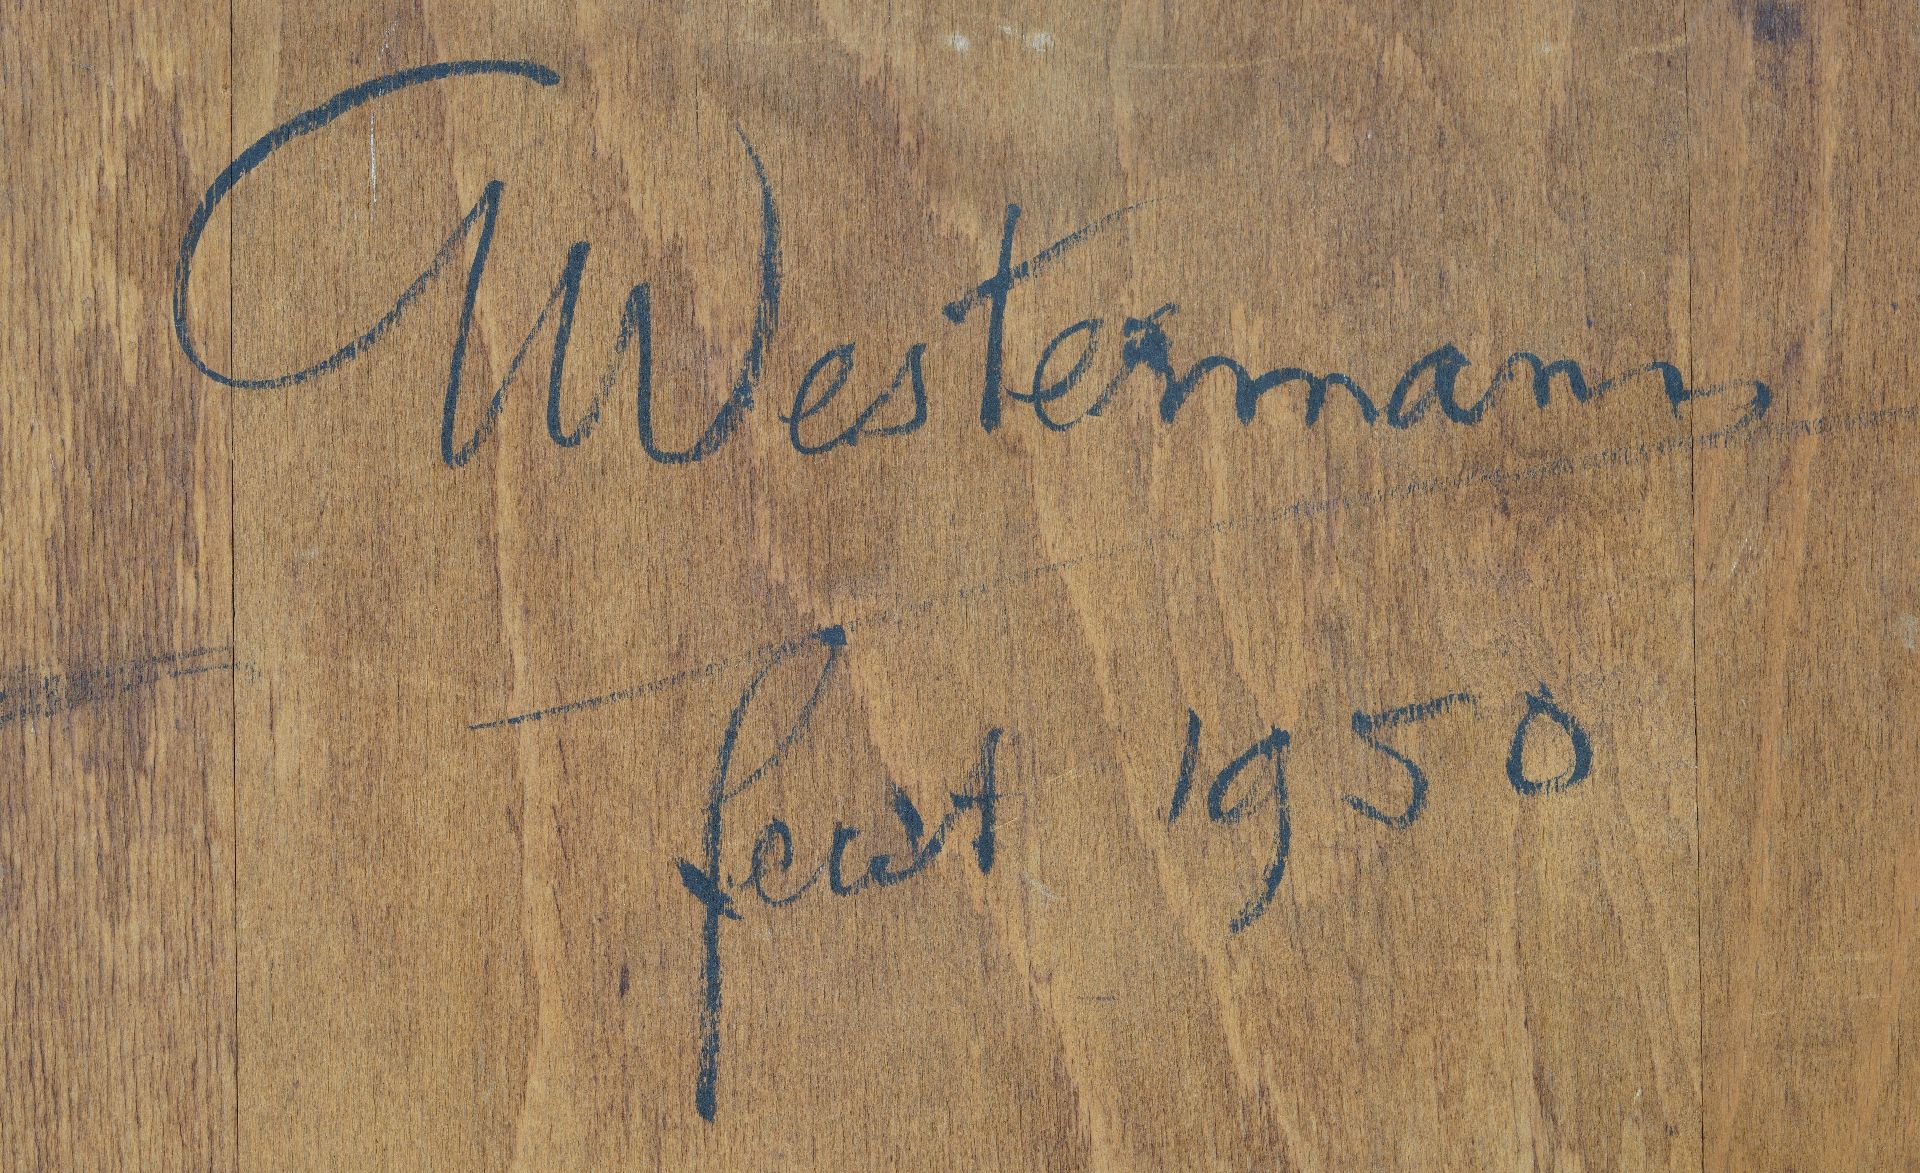 Westermann
fecit 1950